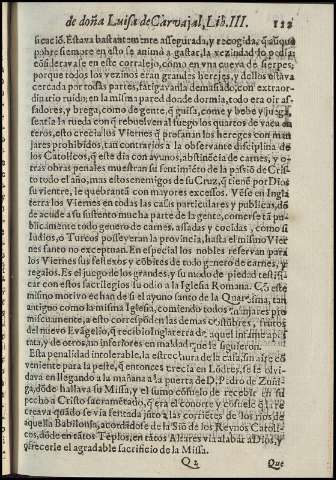 de doña Luisa de Carvajal, Lib. III.
ficació. Estava bastantemente assegurada, y recogida, q̃ aunq̃
pobre siempre en esto se animó a gastar, la vezindad lo pedia:
cósiderava se en este corralejo, cómo en una cueva de sierpes,
porque todos los vezinos eran grandes herejes, y dellos estava
cercada por todas partes, fatigavanla demasiado, con extraor-
dinario ruido; en la misma pared donde dormia, todo era oir as-
sadores, y brega, como de gente, q̃ guisa, come y bebe y juega,
sentia la rueda con q̃ rebuelven al fuego los quartos de vaca en
teros, esto crecia los Viernes q̃ profanan los hereges con man
jares prohibidos, tan contrarios a la observante disciplina de
los Catolicos, q̃ este dia con ayunos, abstinēcia de carnes, y o-
tras obras penales muestran su sentimiēto de la passió de Cris-
to todo el año, mas estos enemigos de su Cruz, q̃ tienē por Dios
su vientre, le quebrantā con mayores excessos. Vese en Ingla
terra los Viernes en todas las casas particulares y publicas, dó
de acude a su sustento mucha parte de la gente, comerse tā pu-
blicamente todo genero de carnes, assadas y cocidas, como si
Iudios, o Turcos posseyeran la provincia, hasta el mismo Vier
nes santo no exceptuan. En especial los nobles reservan para
los Viernes sus festexos y cóbites de todo genero de carnes, y
regalos. Es el juego de los grandes y su modo de piedad testifi-
car con estos sacrilegios su odio a la Iglesia Romana. Có este
mismo motivo echan de si el ayuno santo de la Quaresma, tan
antiguo como la misma Iglesia, comiendo todos manjares pro
miscuamente, a esto corresponden las demas costūbres, frutos
del nuevo Evāgelio, q̃ recibio Inglaterra de aquel infame apos
tata, y de otros, no inferiores en maldad que le siguieron.
Esta penalidad intolerable, la estrechura de la casa, sin aire có
veniente para la peste, q̃ entonces crecia en Lódres, se le olvi-
dava en llegando a la mañana a la puerta de D. Pedro de Zuñi-
ga, dóde hallava su Missa, y el sumo cósuelo de recebir en su
pecho a Cristo sacramétado, q̃ era el conorte y cósuelo q̃ re-
creava quādo se via sentada júto a las corriētes de los rios de
aquella Babilonia, acordādose de la Sió de los Reynos Catoli-
cos, dóde en tātos Tēplos, en tātos Altares via alabar a Dios, y
ofrecerle el agradable sacrificio de la Missa.
Q 2 Que